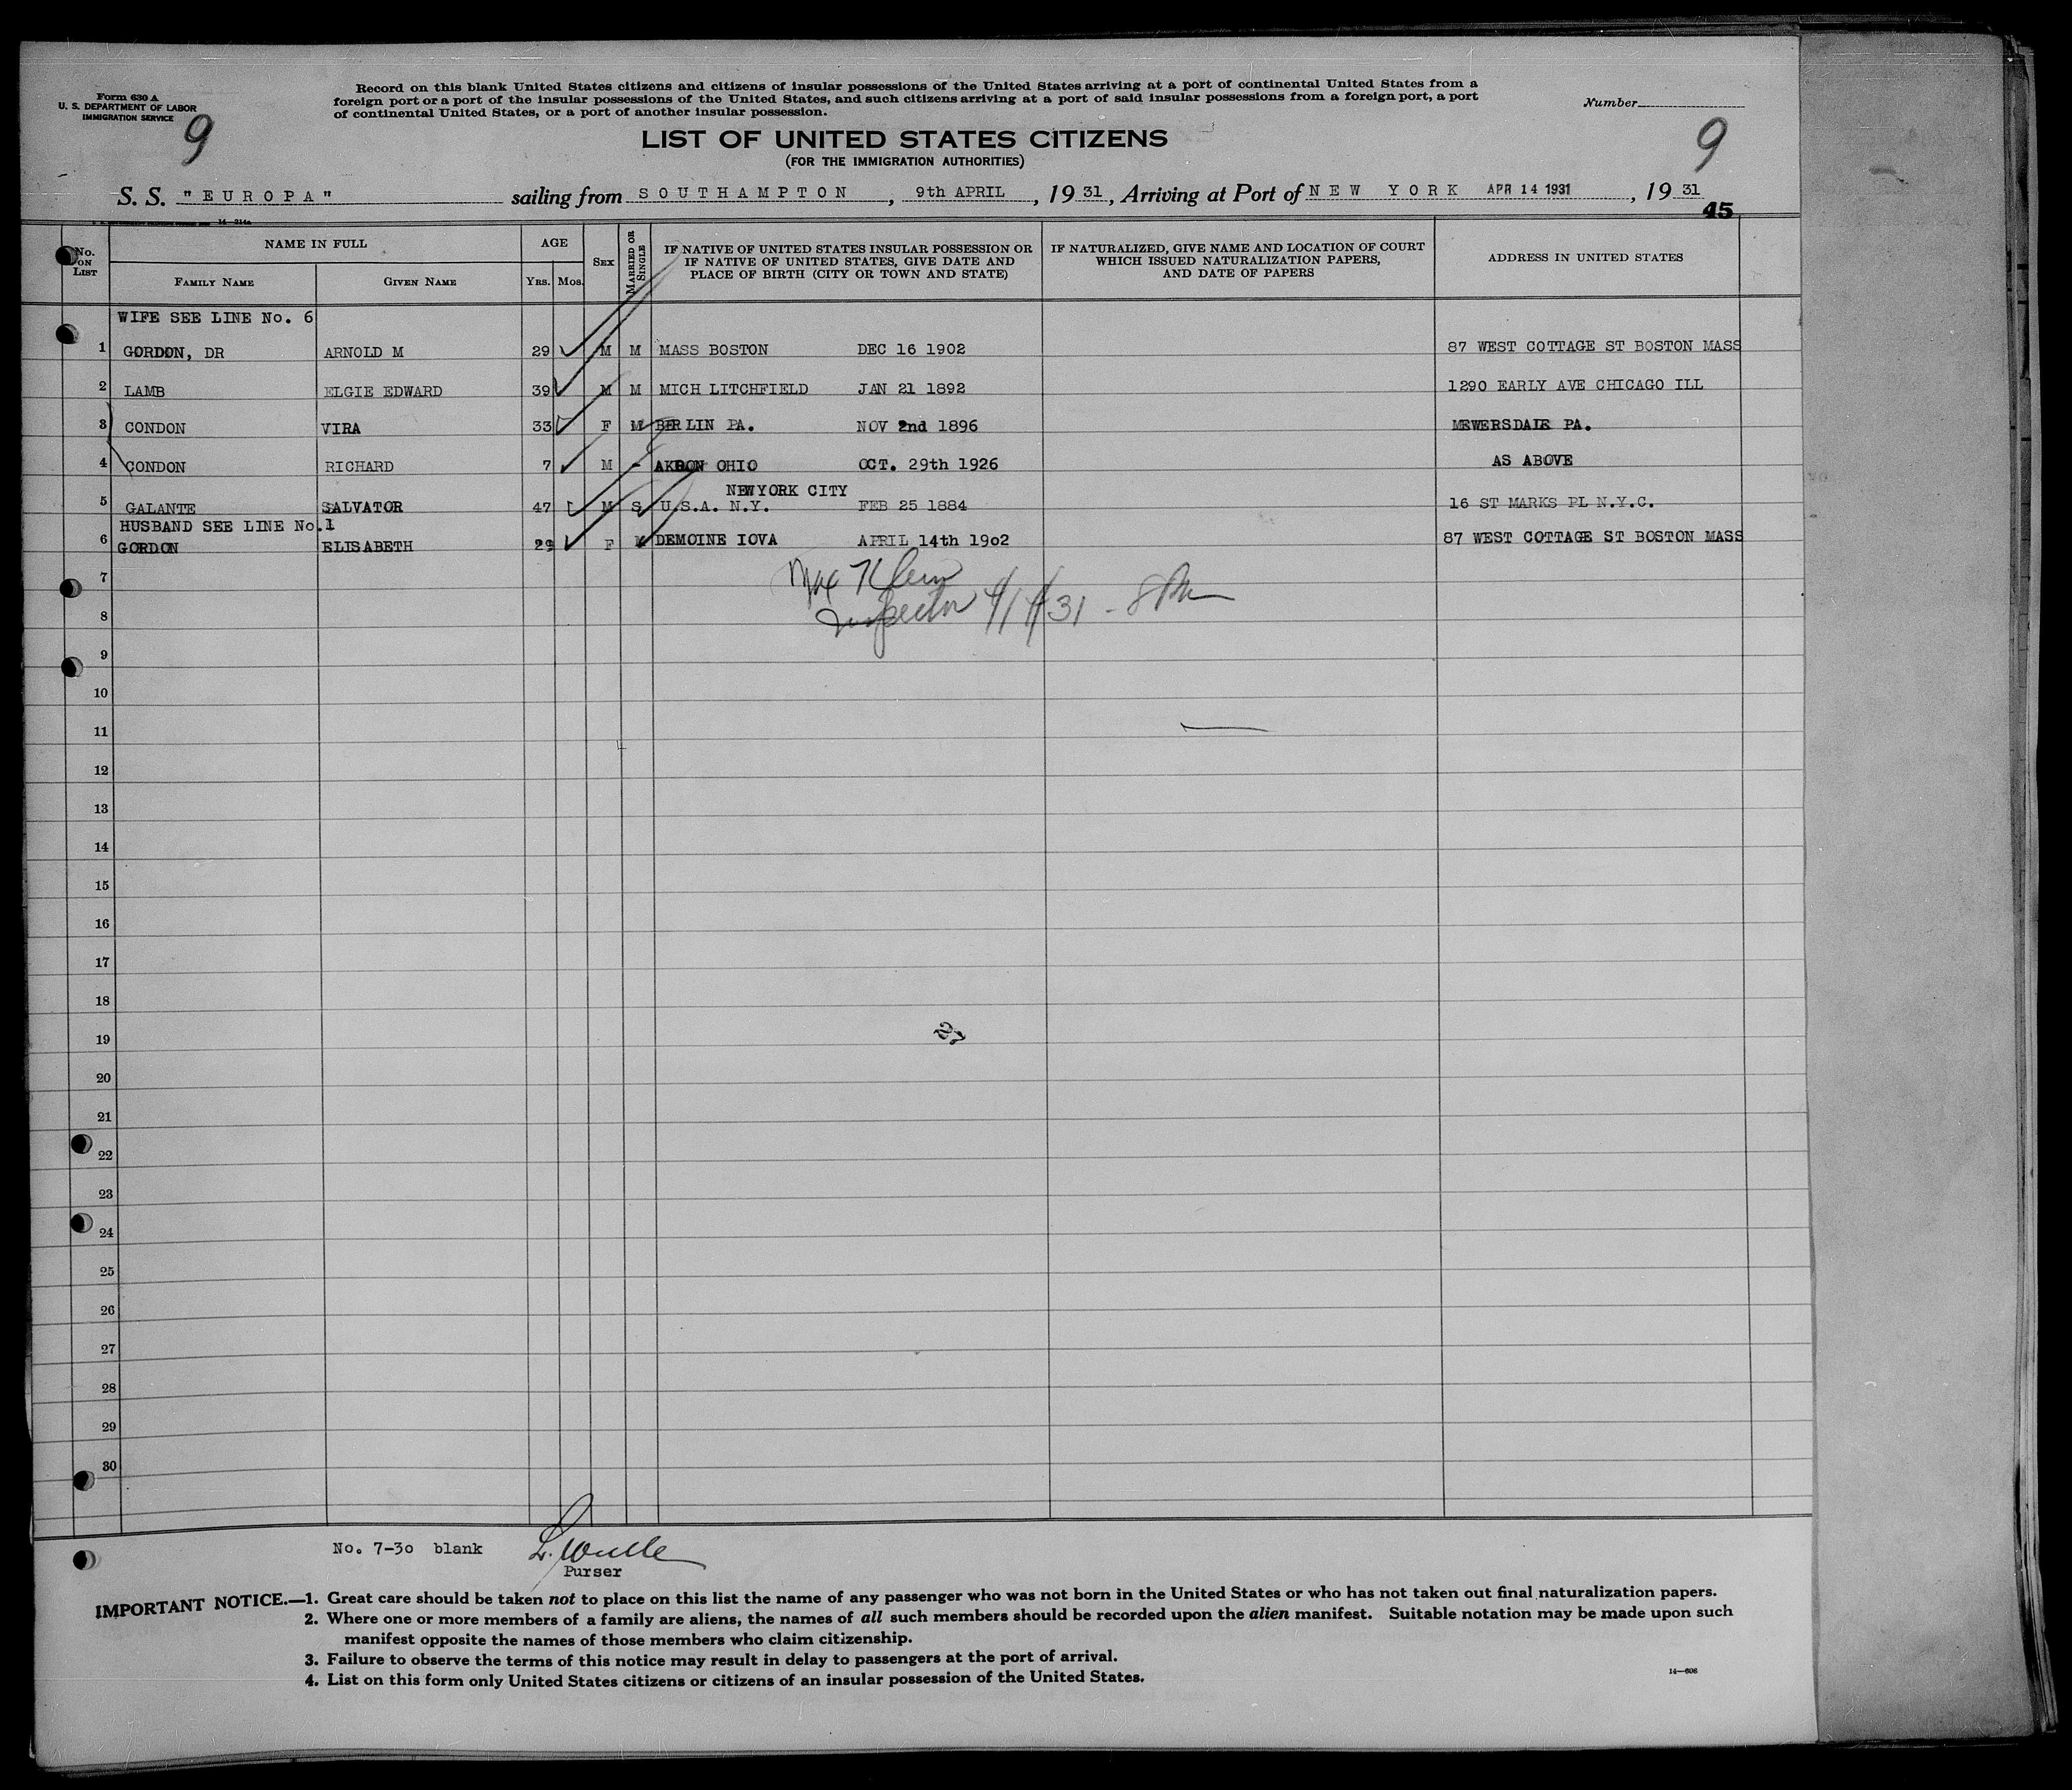 Form 630 A
U. S. DEPARTMENT OF LABOR
IMMIGRATION SERVICE
9
Record on this blank United States citizens and citizens of insular possessions of the United States arriving at a port of continental United States from a
foreign port or a port of the insular possessions of the United States, and such citizens arriving at a port of said insular possessions from a foreign port, a port
of continental United States, or a port of another insular possession.
Number
9
LIST OF UNITED STATES CITIZENS
(FOR THE IMMIGRATION AUTHORITIES)
S. S. "EUROPA" sailing from SOUTHAMPTON, 9th APRIL, 1931, Arriving at Port of NEW YORK APR 14 1931, 1931
45
No. ON LIST NAME IN FULL AGE SEX MARRIED OR SINGLE IF NATIVE OF UNITED STATES INSULAR POSSESSION OR IF NATIVE OF UNITED STATES, GIVE DATE AND PLACE OF BIRTH (CITY OR TOWN AND STATE) IF NATURALIZED, GIVE NAME AND LOCATION OF COURT WHICH ISSUED NATURALIZATION PAPERS, AND DATE OF PAPERS ADDRESS IN UNITED STATES
FAMILY NAME GIVEN NAME YRS. MOS.
WIFE SEE LINE No. 6
1 GORDON, DR ARNOLD M 29 M M MASS BOSTON DEC 16 1902 87 WEST COTTAGE ST BOSTON MASS
2 LAMB ELGIE EDWARD 39 M M MICH LITCHFIELD JAN 21 1892 1290 EARLY AVE CHICAGO ILL
3 CONDON VIRA 33 F M BERLIN PA. NOV 2nd 1896 MEWERSDALE PA.
4 CONDON RICHARD 7 M - AKRON OHIO OCT. 29th 1926 AS ABOVE
NEWYORK CITY
5 GALANTE SALVATOR 47 M S U.S.A. N.Y. FEB 25 1884 16 ST MARKS PL N.Y.C.
HUSBAND SEE LINE No.1
6 GORDON ELISABETH 29 F M DEMOINE IOVA APRIL 14th 19o2 87 WEST COTTAGE ST BOSTON MASS
7
Max Klein
Inspector 4/14/31 - 8 PM
8
9
10
11
12
13
14
15
16
17
18
19
27
20
21
22
23
24
25
26
27
28
29
30
No. 7-3o blank
Purser
IMPORTANT NOTICE.—1. Great care should be taken not to place on this list the name of any passenger who was not born in the United States or who has not taken out final naturalization papers.
2. Where one or more members of a family are aliens, the names of all such members should be recorded upon the alien manifest. Suitable notation may be made upon such
manifest opposite the names of those members who claim citizenship.
3. Failure to observe the terms of this notice may result in delay to passengers at the port of arrival.
4. List on this form only United States citizens or citizens of an insular possession of the United States.
14—608